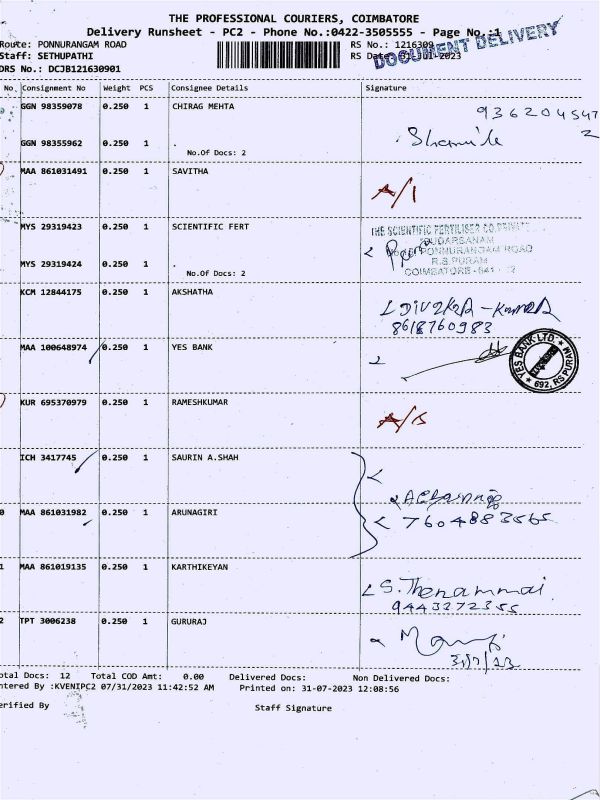 THE PROFESSIONAL COURIERS, COIMBATORE
Delivery Runsheet - PC2 - Phone No.:0422-3505555 - Page No.:1
Route: PONNURANGAM ROAD RS No.: 1216309
Staff: SETHUPATHI RS Date: 31-Jul-2023
DRS No.: DCJB121630901
DOCUMENT DELIVERY
No. Consignment No Weight PCS Consignee Details Signature
GGN 98359078 0.250 1 CHIRAG MEHTA
936204547
2
GGN 98355962 0.250 1 .
No.Of Docs: 2
MAA 861031491 0.250 1 SAVITHA
A/1
MYS 29319423 0.250 1 SCIENTIFIC FERT
THE SCIENTIFIC FERTILISER CO.PRIVATE
SUDARSANAM
PONNURANGAM ROAD
MYS 29319424 0.250 1 .
R.S.PURAM
No.Of Docs: 2
COIMBATORE-641
KCM 12844175 0.250 1 AKSHATHA
8618760983
MAA 100648974 0.250 1 YES BANK
YES BANK LTD. * 692, RS PURAM *
KUR 695370979 0.250 1 RAMESHKUMAR
ICH 3417745 0.250 1 SAURIN A.SHAH
0 MAA 861031982 0.250 1 ARUNAGIRI
7604883565
1 MAA 861019135 0.250 1 KARTHIKEYAN
S. Thenammai
9443272355
2 TPT 3006238 0.250 1 GURURAJ
31/7/23
otal Docs: 12 Total COD Amt: 0.00 Delivered Docs: Non Delivered Docs:
ntered By :KVENIPC2 07/31/2023 11:42:52 AM Printed on: 31-07-2023 12:08:56
erified By Staff Signature